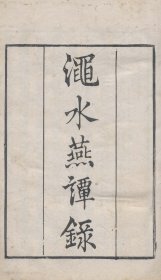 澠水燕譚錄